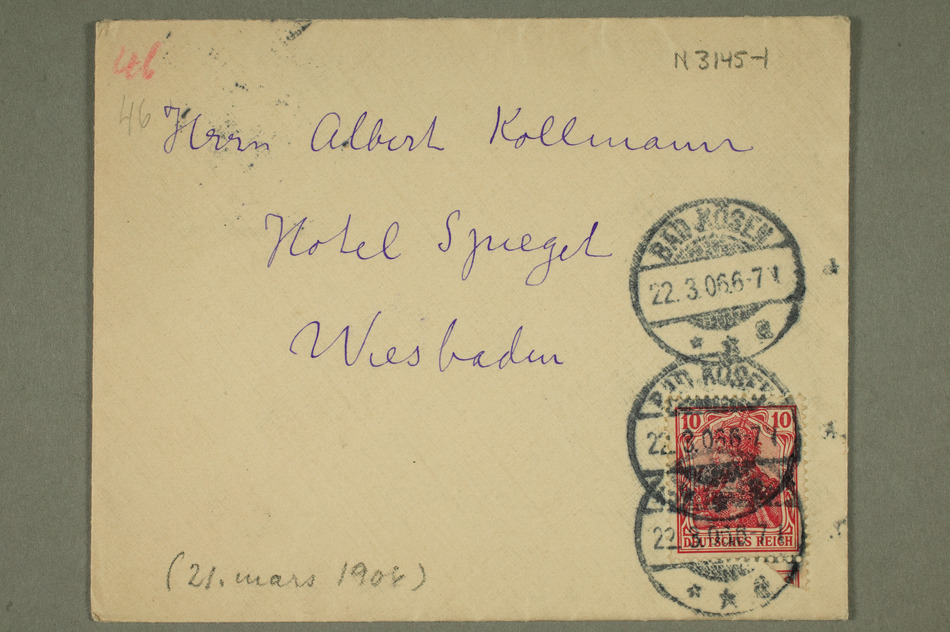 46
N 3145-1
46
Herrn Albert Kollmann
Hotel Spiegel
Wiesbaden
BAD KÖSEN
22.3.06.6-7 V
* * a
BAD KÖSEN
22.3.06.6-7 V
10 10
DEUTSCHES REICH
22.3.06.6-7 V
* * a
(21. mars 1906)